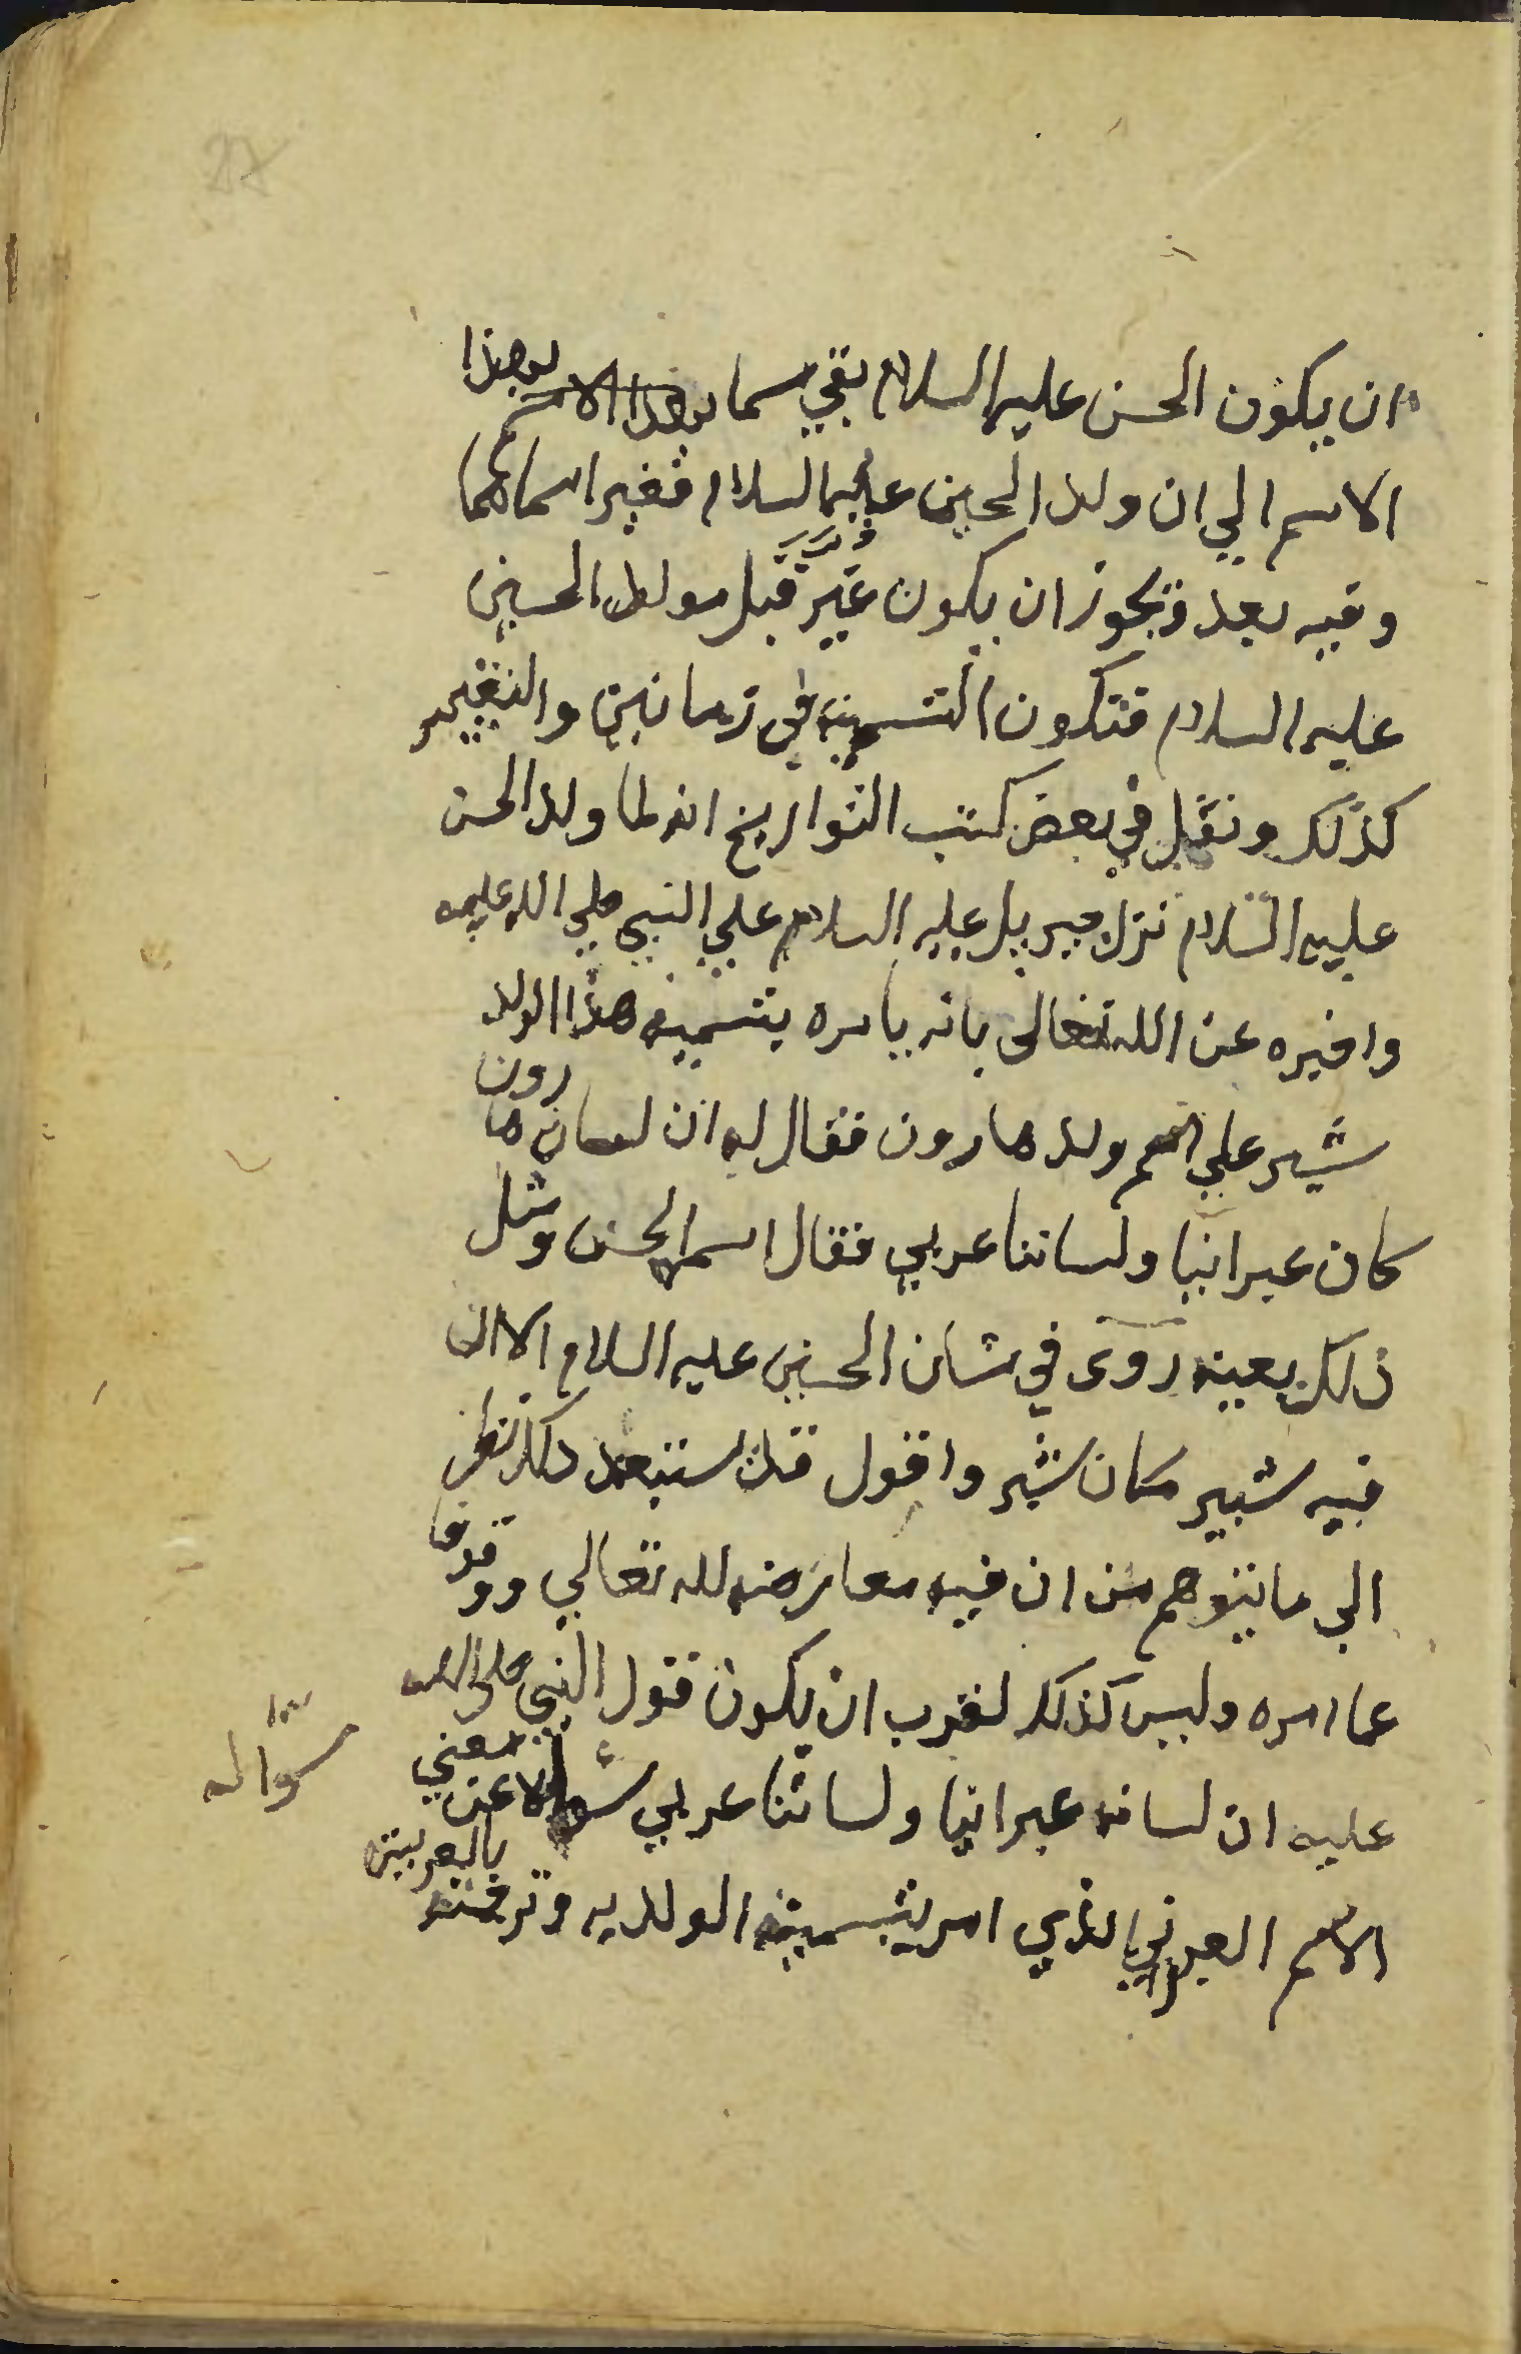 ان يكون الحسن عليه السلام بقي مسما بهذا الاسم بهذا
الاسم الي ان ولد الحسين عليهما السلام فغير اسماهما
وفيه بعد ويجوز ان يكون غير قبل مولد الحسين
عليه السلام فتكون التسمية في زمانين والتغيير
كذلك ونقل في بعض كتب التواريخ انه لما ولد الحسن
عليه السلام نزل جبريل عليه السلام علي النبي صلي الله عليه
واخبره عن الله تعالى بانه يامره بتسمية هذا الولد
شبر علي اسم ولد هارون فقال له ان لسان هارون
كان عبرانيا ولساننا عربي فقال اسمه الحسن ومثل
ذلك بعينه روى في شان الحسين عليه السلام الا ان
فيه شبير مكان شبر واقول قد استبعد ذلك نظر
الي ما يتوهم من ان فيه معارضه لله تعالي ووقوفا
عما امره وليس كذلك لقرب ان يكون قول النبي صلى الله
عليه ان لسانه عبرانيا ولساننا عربي سؤالا عن معني
الاسم العبراني الذي امر بتسمية الولد به وترجمته بالعربية
سؤاله